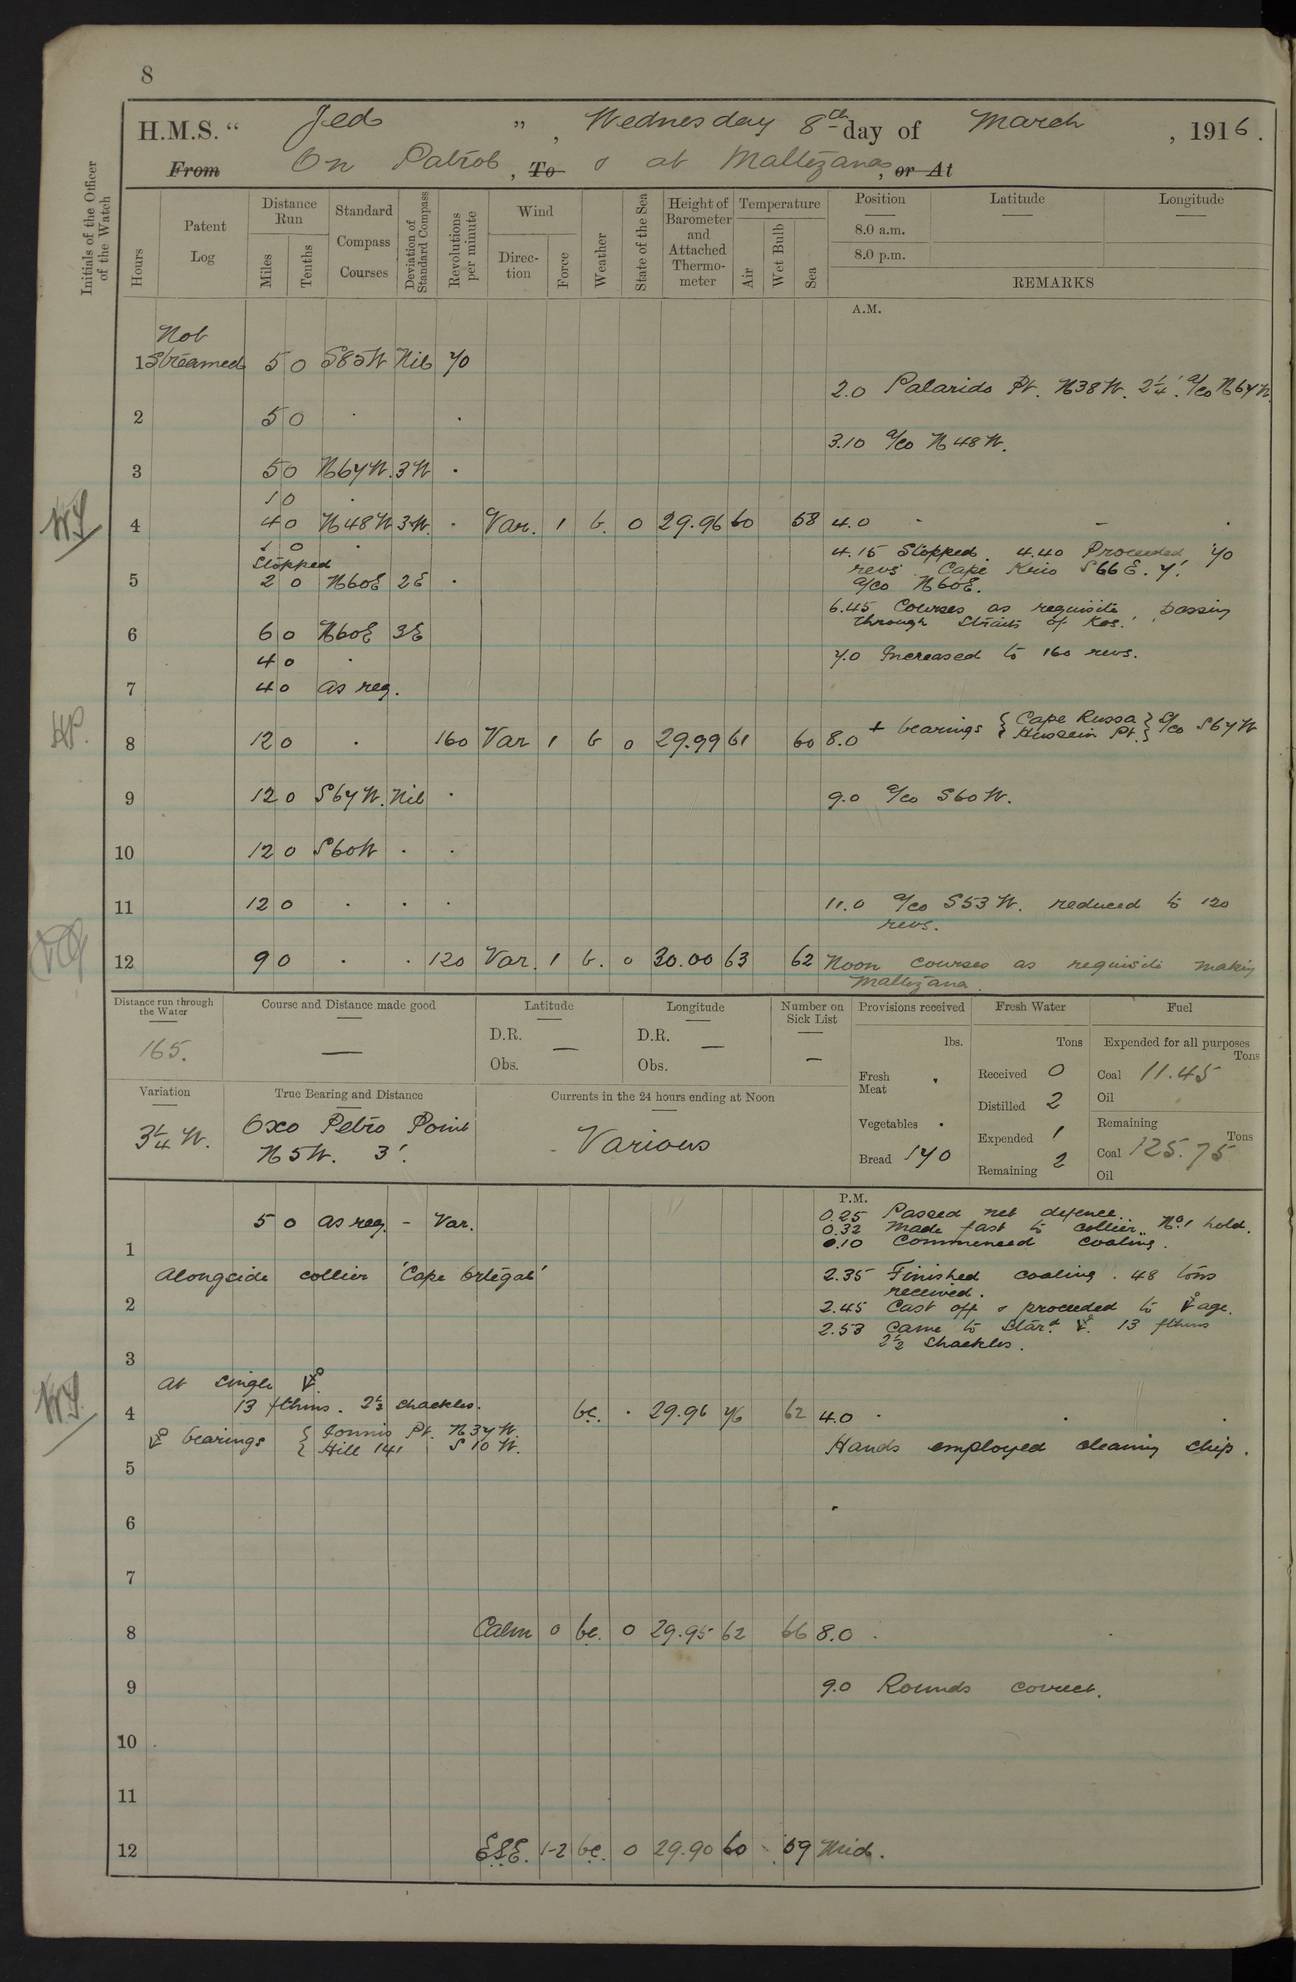 8
H.M.S. “ Jed ” , Wednesday 8th day of March , 1916.
From On Patrol , To & at Maltezana , or At
Initials of the Officer of the Watch
Hours
Patent Log
Distance Run
Miles
Tenths
Standard Compass Courses
Deviation of Standard Compass
Revolutions per minute
Wind
Direction
Force
Weather
State of the Sea
Height of Barometer and Attached Thermometer
Temperature
Air
Wet Bulb
Sea
Position
8.0 a.m.
8.0 p.m.
Latitude
Longitude
REMARKS
A.M.
Not
1 Streamed 5 0 S85W Nil 70
2.0 Palarido Pt. N38W. 2¼'. a/co N67W.
2 5 0 . .
3.10 a/co N48W.
3 5 0 N67W. 3W .
1 0 .
W.S.
4 4 0 N48W 3W. . Var. 1 b. 0 29.96 60 58 4.0 . – .
1 0 .
Stopped
4.15 Stopped. 4.40 Proceeded 70
revs. Cape Krio S66E. 7'.
a/co N60E.
5 2 0 N60E 2E .
6.45 Courses as requisite, passing
through Straits of Kos.
6 6 0 N60E 3E
4 0 .
7.0 Increased to 160 revs.
7 4 0 as req.
H.P.
8 12 0 . 160 Var 1 b 0 29.99 61 60 8.0 + bearings { Cape Russa } a/co S67W
{ Hussein Pt. }
9 12 0 S67W. Nil . 9.0 a/co S60W.
10 12 0 S60W . .
11 12 0 . . . 11.0 a/co S53W. reduced to 120
revs.
12 9 0 . . 120 Var. 1 b. 0 30.00 63 62 Noon courses as requisite making
Maltezana.
Distance run through the Water
165.
Course and Distance made good
—
Latitude
D.R. —
Obs.
Longitude
D.R. —
Obs.
Number on Sick List
–
Provisions received
lbs.
Fresh Meat .
Vegetables .
Bread 170
Fresh Water
Tons
Received 0
Distilled 2
Expended 1
Remaining 2
Fuel
Expended for all purposes
Tons
Coal 11.45
Oil
Remaining
Tons
Coal 125.75
Oil
Variation
3¼ W.
True Bearing and Distance
Oxo Petro Point
N5W. 3'.
Currents in the 24 hours ending at Noon
Various
P.M.
5 0 as req. - Var.
0.25 Passed net defence.
0.32 Made fast to collier. No. 1 hold.
0.10 Commenced coaling.
1
Alongside collier 'Cape Ortegal'
2.35 Finished coaling. 48 tons
received.
2
2.45 Cast off & proceeded to ⚓age.
2.53 Came to Stard. ⚓. 13 fthms
2½ shackles.
3
At single ⚓.
13 fthms. 2½ shackles.
W.S.
4 bc. . 29.96 76 62 4.0 . . .
⚓ bearings { Fonnis Pt. N37W.
{ Hill 141 S10W.
Hands employed cleaning ship.
5
6
7
8 Calm 0 bc. 0 29.95 62 66 8.0 .
9 9.0 Rounds correct.
10
11
12 E.S.E. 1-2 bc. 0 29.90 60 59 Mid.